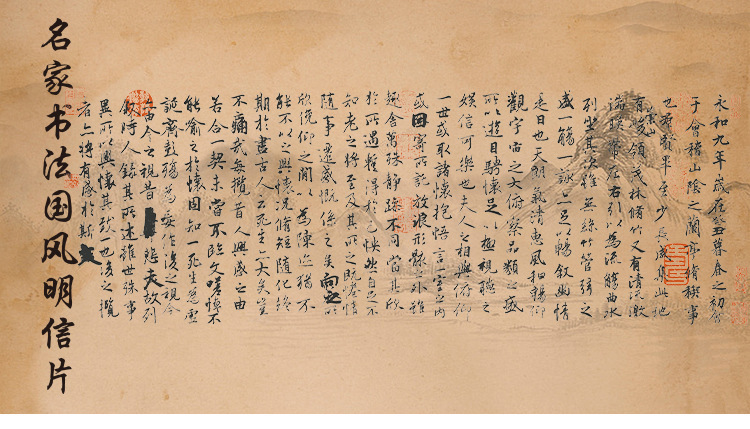 名家书法国风明信片
永和九年歲在癸丑暮春之初會
于會稽山陰之蘭亭脩稧事
也群賢畢至少長咸集此地
有崇山峻領茂林脩竹又有清流激
湍暎帶左右引以為流觴曲水
列坐其次雖無絲竹管弦之
盛一觴一詠亦足以暢敘幽情
是日也天朗氣清惠風和暢仰
觀宇宙之大俯察品類之盛
所以遊目騁懷足以極視聽之
娛信可樂也夫人之相與俯仰
一世或取諸懷抱悟言一室之內
或因寄所託放浪形骸之外雖
趣舍萬殊靜躁不同當其欣
於所遇暫得於己怏然自足不
知老之將至及其所之既惓情
隨事遷感慨係之矣向之所
欣俛仰之間以為陳迹猶不
能不以之興懷況脩短隨化終
期於盡古人云死生亦大矣豈
不痛哉每攬昔人興感之由
若合一契未嘗不臨文嗟悼不
能喻之於懷固知一死生為虛
誕齊彭殤為妄作後之視今
亦由今之視昔悲夫故列
敘時人錄其所述雖世殊事
異所以興懷其致一也後之攬
者亦將有感於斯文